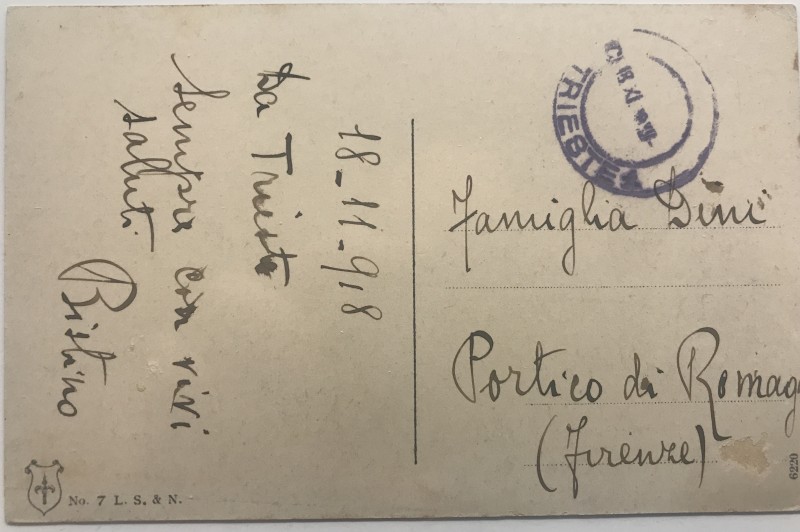 18-11-918
Da Trieste
Sempre con vivi
salluti
Bistino
TRIESTE
18 XI
Famiglia Dini
Portico di Romag
(Firenze)
No. 7 L. S. & N.
6220